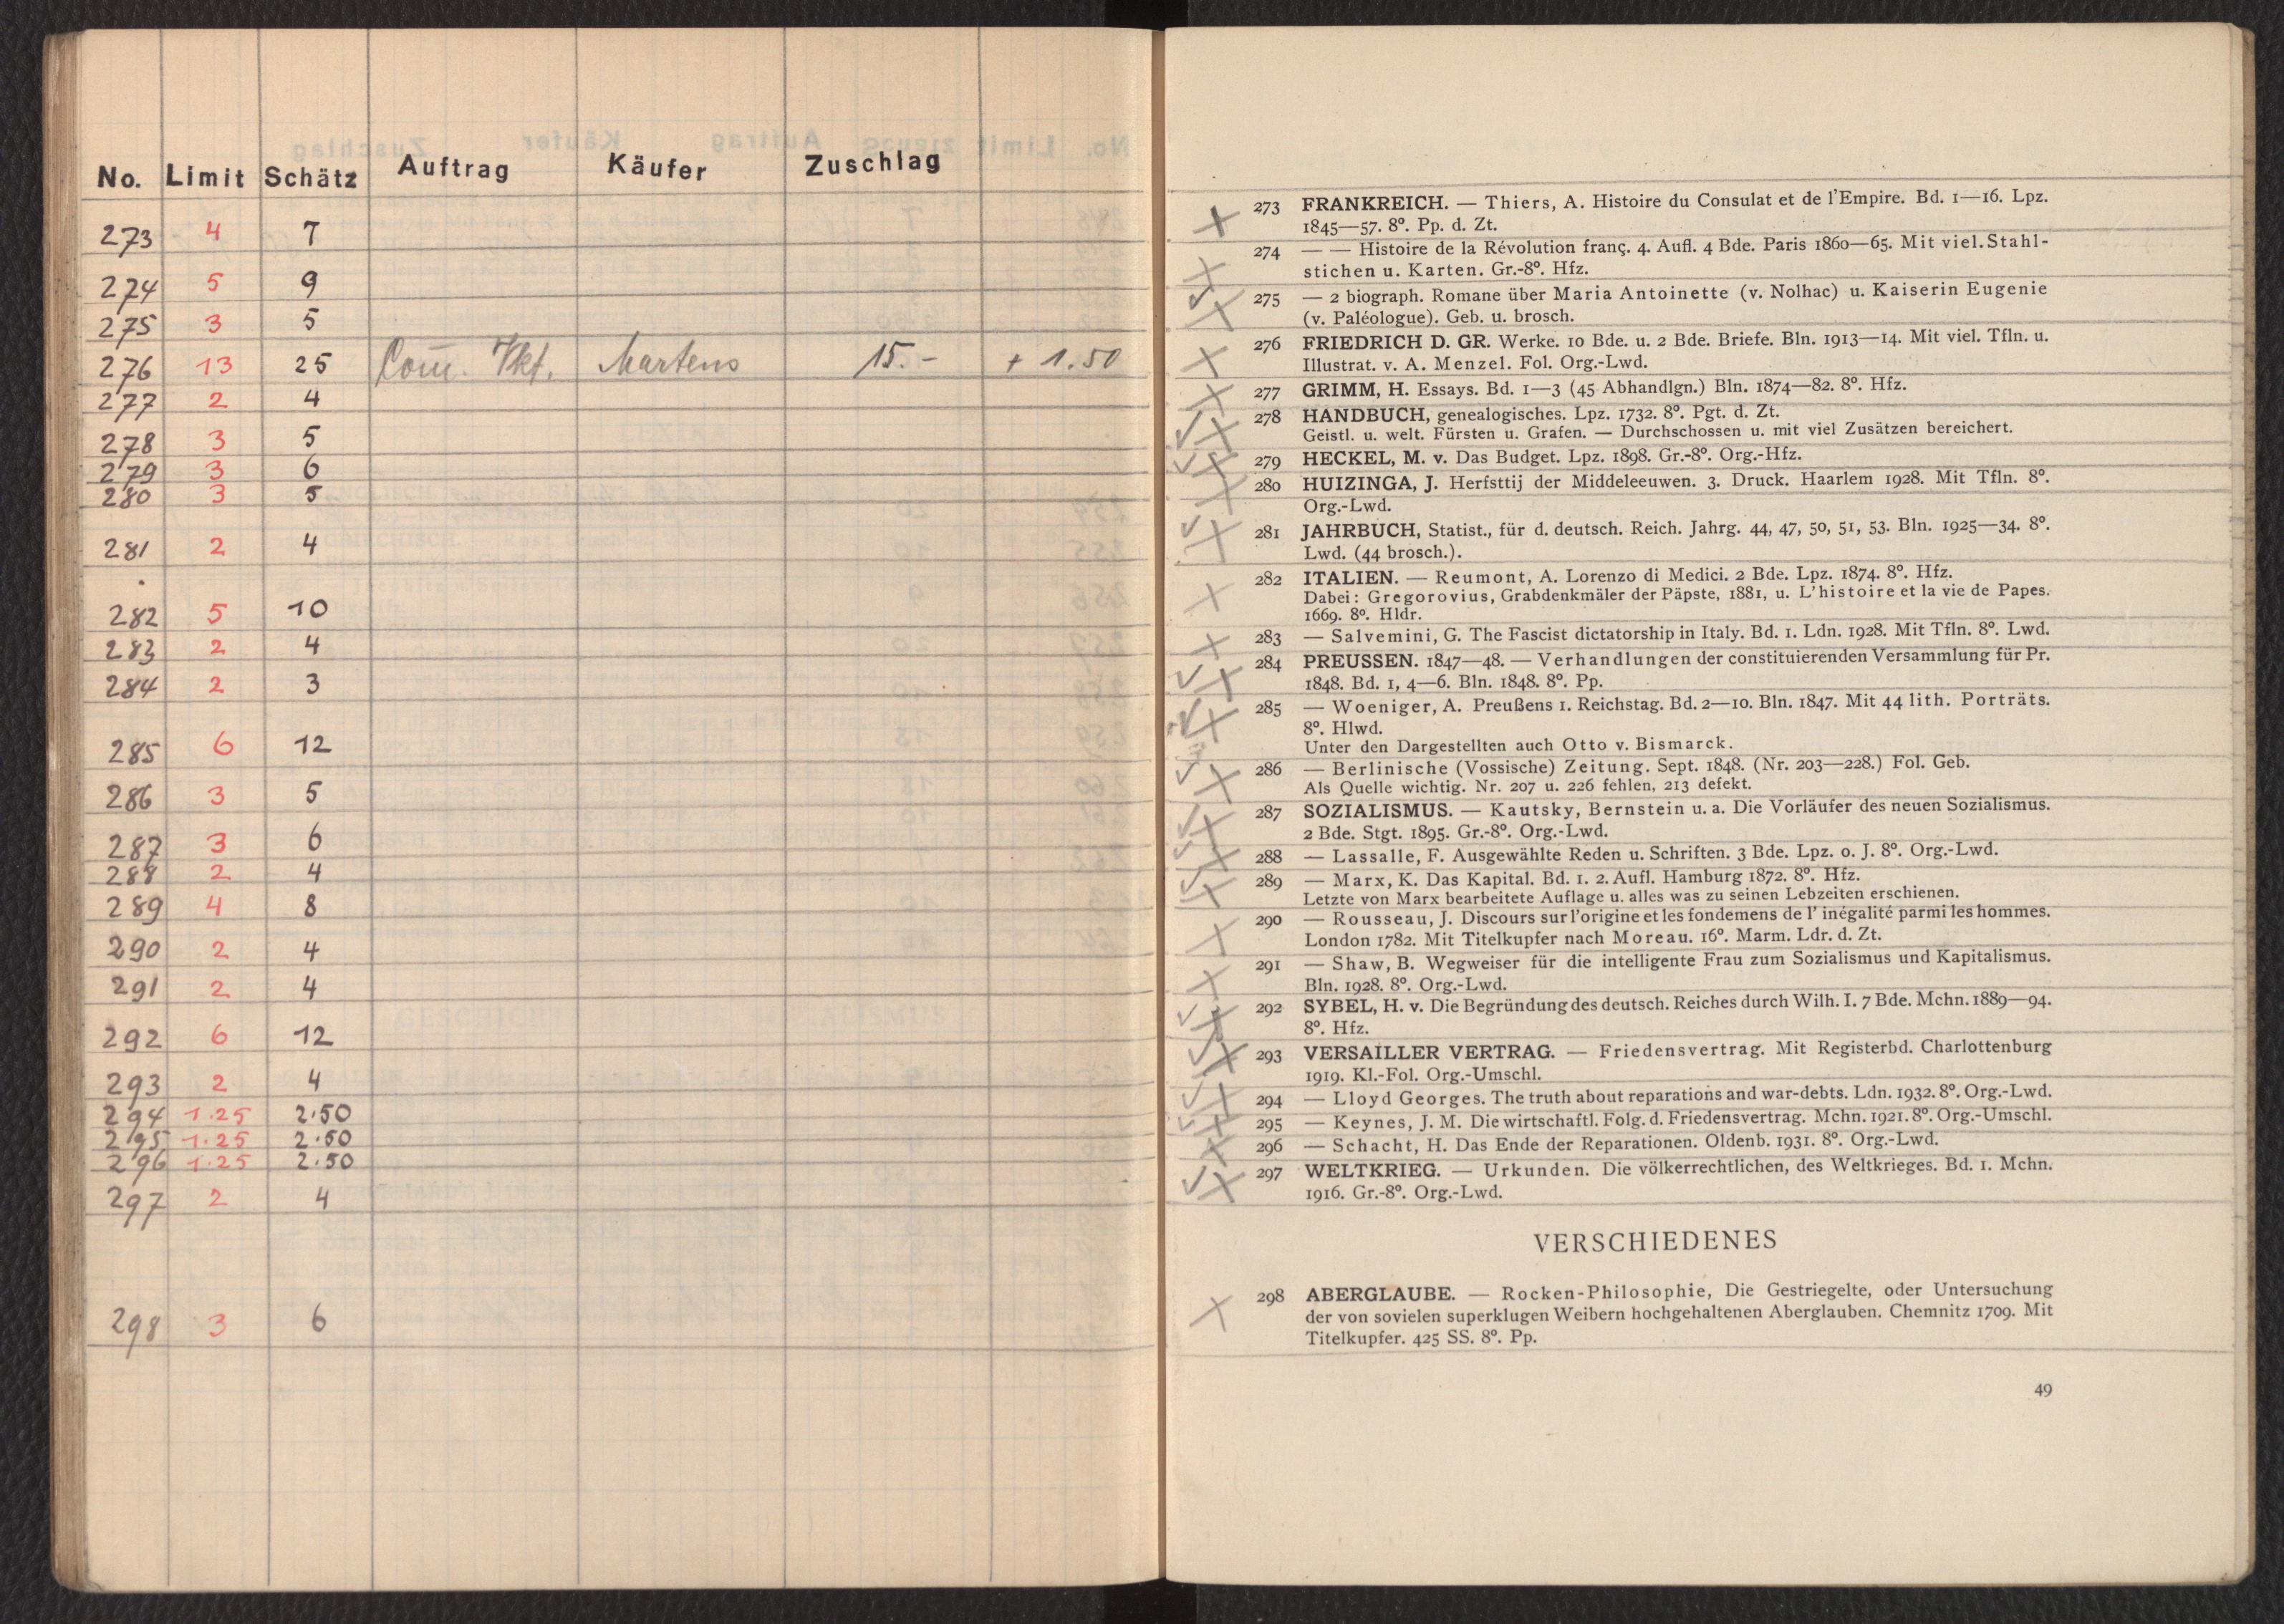 No. Limit Schätz Auftrag Käufer Zuschlag
273 4 7
274 5 9
275 3 5
276 13 25 Com. Martens 15.- + 1.50
277 2 4
278 3 5
279 3 6
280 3 5
281 2 4
282 5 10
283 2 4
284 2 3
285 6 12
286 3 5
287 3 6
288 2 4
289 4 8
290 2 4
291 2 4
292 6 12
293 2 4
294 1.25 2.50
295 1.25 2.50
296 1.25 2.50
297 2 4
298 3 6
273 FRANKREICH. — Thiers, A. Histoire du Consulat et de l'Empire. Bd. 1—16. Lpz.
1845—57. 8º. Pp. d. Zt.
274 — — Histoire de la Révolution franç. 4. Aufl. 4 Bde. Paris 1860—65. Mit viel. Stahl-
stichen u. Karten. Gr.-8º. Hfz.
275 — 2 biograph. Romane über Maria Antoinette (v. Nolhac) u. Kaiserin Eugenie
(v. Paléologue). Geb. u. brosch.
276 FRIEDRICH D. GR. Werke. 10 Bde. u. 2 Bde. Briefe. Bln. 1913—14. Mit viel. Tfln. u.
Illustrat. v. A. Menzel. Fol. Org.-Lwd.
277 GRIMM, H. Essays. Bd. 1—3 (45 Abhandlgn.) Bln. 1874—82. 8º. Hfz.
278 HANDBUCH, genealogisches. Lpz. 1732. 8º. Pgt. d. Zt.
Geistl. u. welt. Fürsten u. Grafen. — Durchschossen u. mit viel Zusätzen bereichert.
279 HECKEL, M. v. Das Budget. Lpz. 1898. Gr.-8º. Org.-Hfz.
280 HUIZINGA, J. Herfsttij der Middeleeuwen. 3. Druck. Haarlem 1928. Mit Tfln. 8º.
Org.-Lwd.
281 JAHRBUCH, Statist., für d. deutsch. Reich. Jahrg. 44, 47, 50, 51, 53. Bln. 1925—34. 8º.
Lwd. (44 brosch.).
282 ITALIEN. — Reumont, A. Lorenzo di Medici. 2 Bde. Lpz. 1874. 8º. Hfz.
Dabei: Gregorovius, Grabdenkmäler der Päpste, 1881, u. L'histoire et la vie de Papes.
1669. 8º. Hldr.
283 — Salvemini, G. The Fascist dictatorship in Italy. Bd. 1. Ldn. 1928. Mit Tfln. 8º. Lwd.
284 PREUSSEN. 1847—48. — Verhandlungen der constituierenden Versammlung für Pr.
1848. Bd. 1, 4—6. Bln. 1848. 8º. Pp.
285 — Woeniger, A. Preußens 1. Reichstag. Bd. 2—10. Bln. 1847. Mit 44 lith. Porträts.
8º. Hlwd.
Unter den Dargestellten auch Otto v. Bismarck.
286 — Berlinische (Vossische) Zeitung. Sept. 1848. (Nr. 203—228.) Fol. Geb.
Als Quelle wichtig. Nr. 207 u. 226 fehlen, 213 defekt.
287 SOZIALISMUS. — Kautsky, Bernstein u. a. Die Vorläufer des neuen Sozialismus.
2 Bde. Stgt. 1895. Gr.-8º. Org.-Lwd.
288 — Lassalle, F. Ausgewählte Reden u. Schriften. 3 Bde. Lpz. o. J. 8º. Org.-Lwd.
289 — Marx, K. Das Kapital. Bd. 1. 2. Aufl. Hamburg 1872. 8º. Hfz.
Letzte von Marx bearbeitete Auflage u. alles was zu seinen Lebzeiten erschienen.
290 — Rousseau, J. Discours sur l'origine et les fondemens de l' inégalité parmi les hommes.
London 1782. Mit Titelkupfer nach Moreau. 16º. Marm. Ldr. d. Zt.
291 — Shaw, B. Wegweiser für die intelligente Frau zum Sozialismus und Kapitalismus.
Bln. 1928. 8º. Org.-Lwd.
292 SYBEL, H. v. Die Begründung des deutsch. Reiches durch Wilh. I. 7 Bde. Mchn. 1889—94.
8º. Hfz.
293 VERSAILLER VERTRAG. — Friedensvertrag. Mit Registerbd. Charlottenburg
1919. Kl.-Fol. Org.-Umschl.
294 — Lloyd Georges. The truth about reparations and war-debts. Ldn. 1932. 8º. Org.-Lwd.
295 — Keynes, J. M. Die wirtschaftl. Folg. d. Friedensvertrag. Mchn. 1921. 8º. Org.-Umschl.
296 — Schacht, H. Das Ende der Reparationen. Oldenb. 1931. 8º. Org.-Lwd.
297 WELTKRIEG. — Urkunden. Die völkerrechtlichen, des Weltkrieges. Bd. 1. Mchn.
1916. Gr.-8º. Org.-Lwd.
VERSCHIEDENES
298 ABERGLAUBE. — Rocken-Philosophie, Die Gestriegelte, oder Untersuchung
der von sovielen superklugen Weibern hochgehaltenen Aberglauben. Chemnitz 1709. Mit
Titelkupfer. 425 SS. 8º. Pp.
49